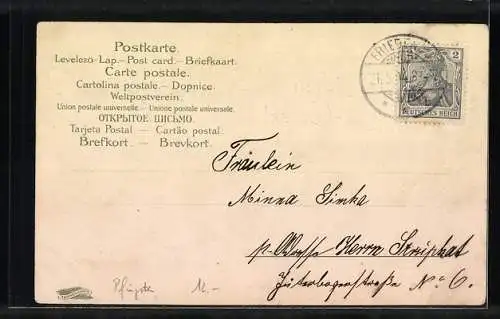 Postkarte.
Levelező-Lap.—Post card.—Briefkaart.
Carte postale.
Cartolina postale. - Dopnice.
Weltpostverein.
Union postale universelle. - Unione postale universale.
ОТКРЫТОЕ ПИСЬМО.
Tarjeta Postal — Cartão postal.
Brefkort. - Brevkort.
2
DEUTSCHES REICH
Fräulein
Minna Simka
Herrn
Jüterbogerstraße No 6.
Pfingsten 12.-